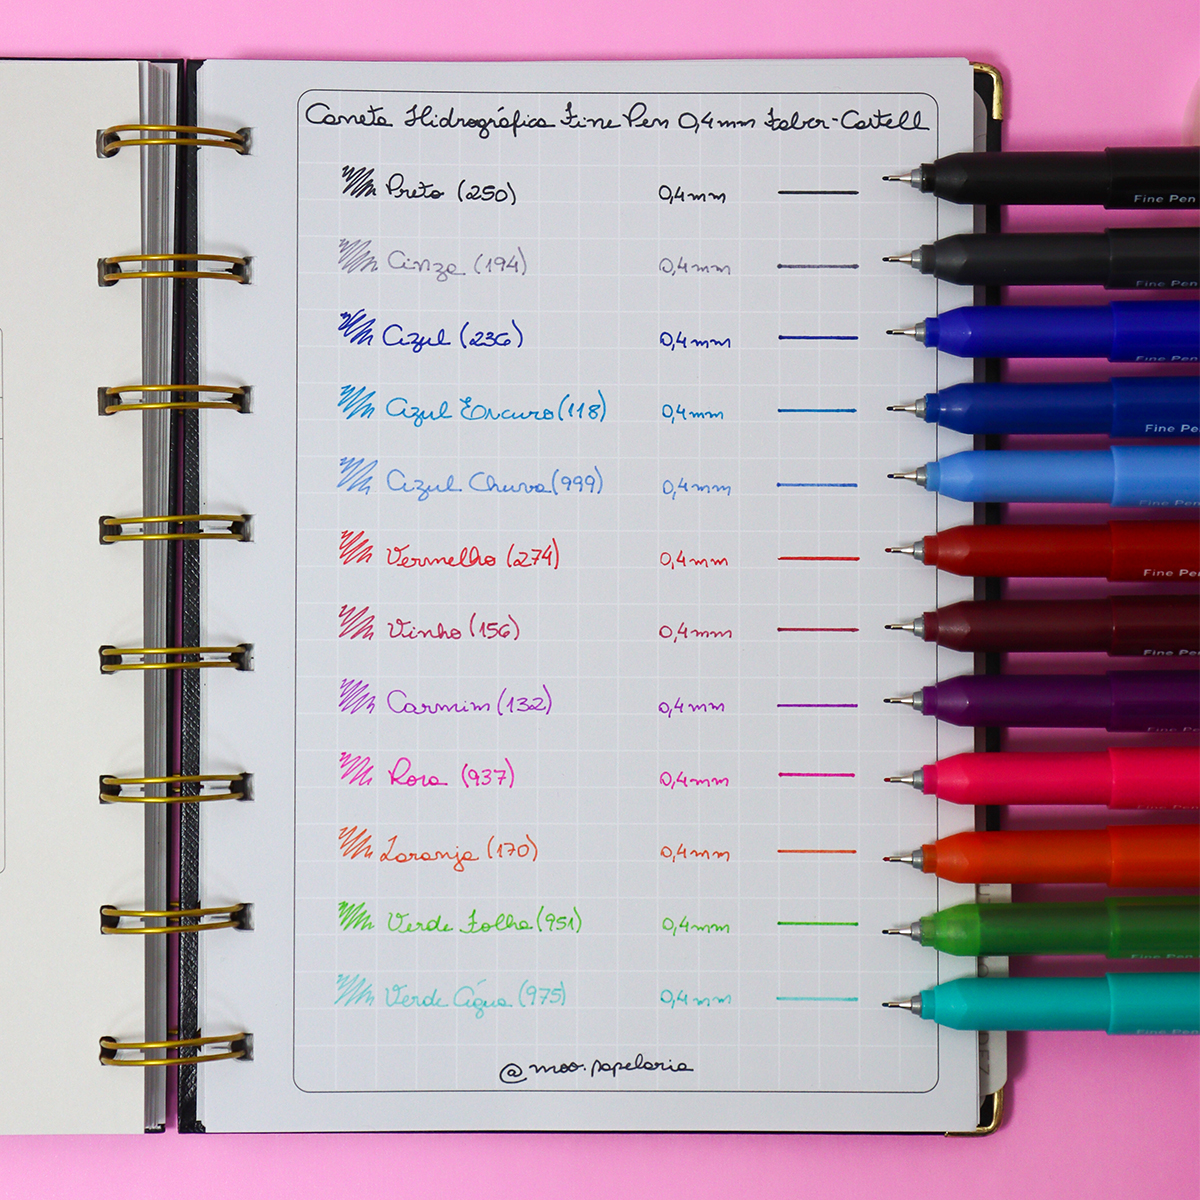 Caneta Hidrográfica Fine Pen 0,4mm Faber-Castell
Preto (250) 0,4mm
Fine Pen
Cinza (194) 0,4mm
Fine Pen
Azul (236) 0,4mm
Fine Pen
Azul Escuro (118) 0,4mm
Fine Pe
Azul Chuva (999) 0,4mm
Fine Pen
Vermelho (274) 0,4mm
Fine Pen
Vinho (156) 0,4mm
Fine Pen
Carmim (132) 0,4mm
Fine Pen
Rosa (937) 0,4mm
Fine Pen
Laranja (170) 0,4mm
Verde Folha (951) 0,4mm
Fine Pen
Verde Água (975) 0,4mm
Fine Pen
@moo.papelaria